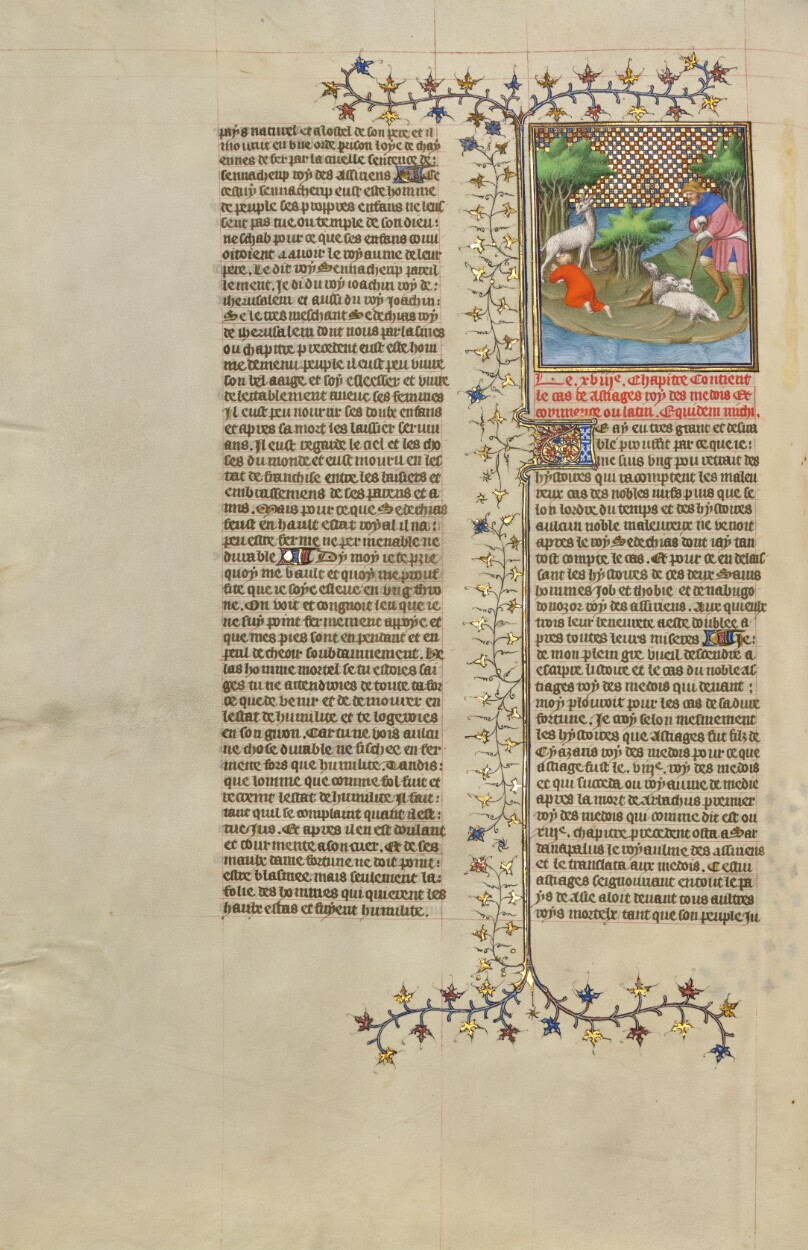 pays naturel et a lostel de son pere et il
mourut en une orde prison loye de chay
ennes de fer par la cruelle sentence de:
sennacherip roy des assiriens Se
cestuy sennacherip eust este homme
de peuple ses propres enfans ne leus
sent pas tue ou temple de son dieu:
neschab pour ce que ses enfans couu
oitoient a auoir le royaume de leur
pere. Le dit roy Sennacherip pareil
lement. Je di du roy ioachin roy de:
iherusalem et aussi du roy Joachin:
Se le tres meschant Sedechias roy
de iherusalem dont nous parlasmes
ou chapitre precedent eust este hom
me de menu peuple il eust peu viure
son bel aaige et soy esleesser et viure
delectablement auecc ses femmes
Il eust peu nourrir ses doulz enfans
et apres sa mort les laissier seruiu
ans. Il eust regarde le ciel et les cho
ses du monde et eust mouru en les
tat de franchise entre les baisiers et
embrassemens de ses parens et a
mis. Mais pour ce que Sedechias
feust en hault estat royal il na:
peu estre ferme ne permenable ne
durable Dy moy ie te prie
quoy me vault et quoy me prouf
fite que ie soye esleue en vng thro
ne. On voit et congnoit len que ie
ne suy point fermement appoye et
que mes pies sont en pendant et en
peril de cheoir soubdainnement. He
las homme mortel se tu estoies sai
ges tu ne attendroies de toute ta for
ce que de venir et de demourer en
lestat de humilite et te logeroies
en son giron. Car tu ne vois aucu
ne chose durable ne fischee en fer
mete fors que humilite. Tandis:
que lomme que comme fol fuit et
te ceemt lestat de humilite Il fait:
tant quil se complaint quant il est:
mis Jus. Et apres il en est doulant
et courmente a son cuer. Et de ses
maulx dame fortune ne doit point:
estre blasmee, mais seulement la:
folie des hommes qui quierent les
haulx estas et fuyent humilite.
Le .xviije. Chapitre Contient
le cas de astiages roy des medois Et
commence ou latin. Equidem michi.
Je ay eu tres grant et desira
ble prouffit par ce que ie:
me suis vng pou retrait des
hystoires qui racomptent les maleu
reux cas des nobles mis plus que se
lon lordre du temps et des hystoires
aucun noble maleureux ne venoit
apres le roy Sedechias dont iay tan
tost compte le cas. Et pour ce en delais
sant les hystoires de ces deux Sains
hommes Job et thobie et de nabugo
donozor roy des assiriens. Aux quieulx
trois leur beneurete a este doublee a
pres toutes leurs miseres Je:
de mon plein gre vueil descendre a
escripre listoire et le cas du noble as
tiages roy des medois qui deuant:
moy plouroit pour les cas de sa dure
fortune. Je croy selon mesmement
les hystoires que Astiages fut filz de
Cyazans roy des medois pour ce que
astiage fust le. viije. roy des medois
et qui succeda ou royaume de medie
apres la mort de Arbachus premier
roy des medois qui comme dit est ou
xiije. chapitre precedent osta a Sar
danapalus le royaulme des assiriens
et le translata aux medois. Cestui
astiages seignourant en tout le pa
ys de Asie aloit deuant tous aultres
roys mortelx tant que son peuple Ju